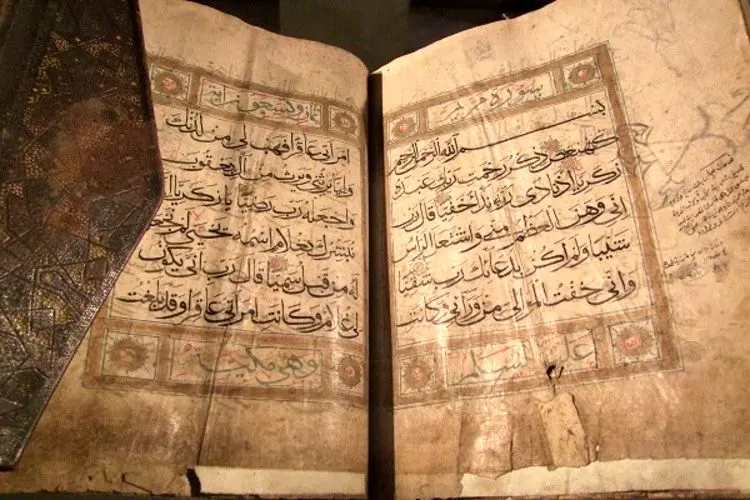 سورة مريم
بسم الله الرحمن الرحيم
كهيعص ذكر رحمت ربك عبده
زكريا إذ نادى ربه نداء خفيا قال رب
إني وهن العظم مني واشتعل الرأس
شيبا ولم أكن بدعائك رب شقيا
وإني خفت الموالي من وراءي وكانت
عليها السلم
ثمان وتسعون اية
امراتي عاقرا فهب لي من لدنك
وليا يرثني ويرث من آل يعقوب
واجعله رب رضيا يا زكريا انا
نبشرك بغلام اسمه يحيى لم نجعل
له من قبل سميا قال رب أنى يكون
لي غلام وكانت امراتي عاقرا وقد بلغت
وهي مكية